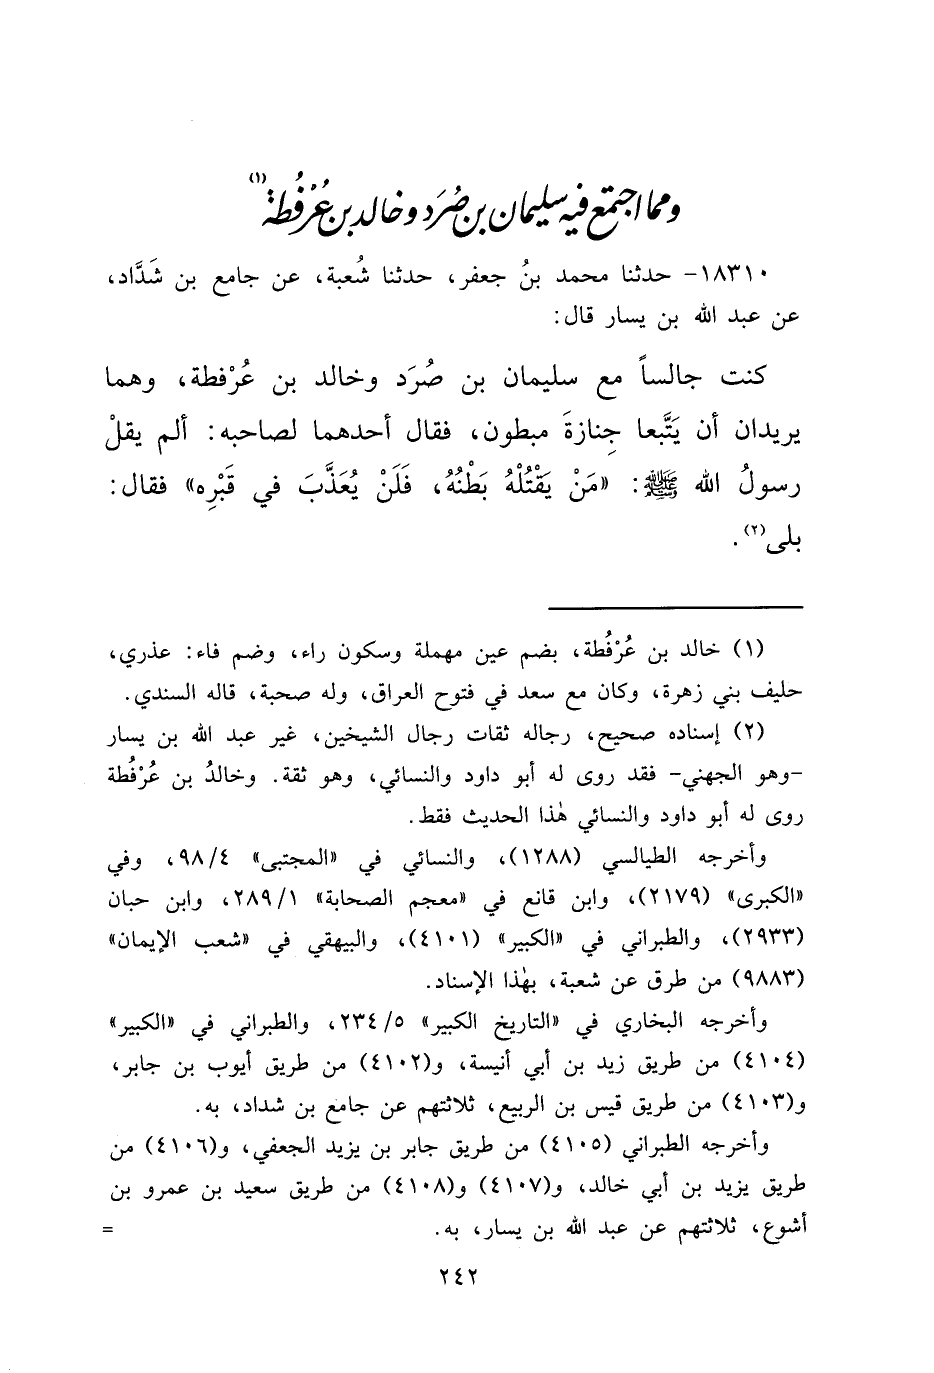 ومما اجتمع فيه سليمان بن صُرَد وخالد بن عُرْفُطة(١)
١٨٣١٠- حدثنا محمد بنُ جعفر، حدثنا شُعبة، عن جامع بن شَدَّاد،
عن عبد الله بن يسار قال:
كنت جالساً مع سليمان بن صُرَد وخالد بن عُرْفطة، وهما
يريدان أن يَتَّبعا جِنازةَ مبطون، فقال أحدهما لصاحبه: ألم يقلْ
رسولُ الله ﷺ: «مَنْ يَقْتُلْهُ بَطْنُهُ، فَلَنْ يُعَذَّبَ في قَبْرِه» فقال:
بلى(٢).
(١) خالد بن عُرْفُطة، بضم عين مهملة وسكون راء، وضم فاء: عذري،
حليف بني زهرة، وكان مع سعد في فتوح العراق، وله صحبة، قاله السندي.
(٢) إسناده صحيح، رجاله ثقات رجال الشيخين، غير عبد الله بن يسار
-وهو الجهني- فقد روى له أبو داود والنسائي، وهو ثقة. وخالدُ بن عُرْفُطة
روى له أبو داود والنسائي هٰذا الحديث فقط.
وأخرجه الطيالسي (١٢٨٨)، والنسائي في «المجتبى» ٩٨/٤، وفي
«الكبرى» (٢١٧٩)، وابن قانع في «معجم الصحابة» ٢٨٩/١، وابن حبان
(٢٩٣٣)، والطبراني في «الكبير» (٤١٠١)، والبيهقي في «شعب الإيمان»
(٩٨٨٣) من طرق عن شعبة، بهٰذا الإسناد.
وأخرجه البخاري في «التاريخ الكبير» ٢٣٤/٥، والطبراني في «الكبير»
(٤١٠٤) من طريق زيد بن أبي أنيسة، و(٤١٠٢) من طريق أيوب بن جابر،
و(٤١٠٣) من طريق قيس بن الربيع، ثلاثتهم عن جامع بن شداد، به.
وأخرجه الطبراني (٤١٠٥) من طريق جابر بن يزيد الجعفي، و(٤١٠٦) من
طريق يزيد بن أبي خالد، و(٤١٠٧) و(٤١٠٨) من طريق سعيد بن عمرو بن
أشوع، ثلاثتهم عن عبد الله بن يسار، به. =
٢٤٢